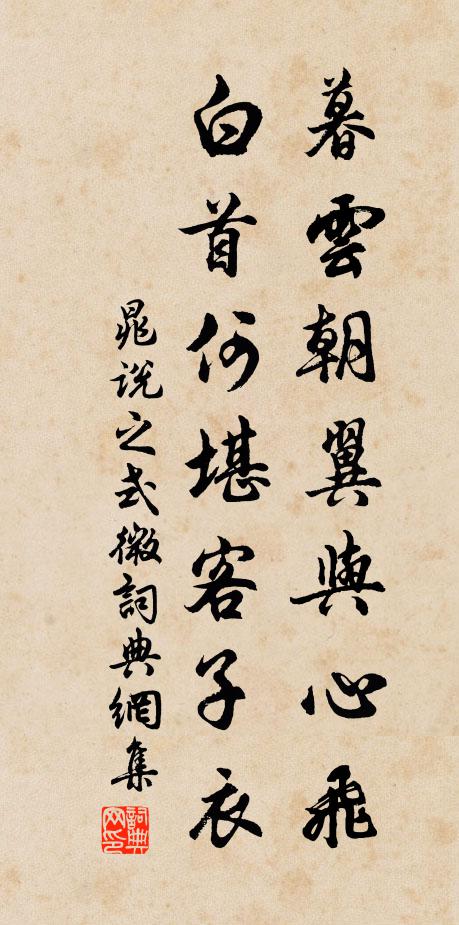 暮雲朝翼與心飛
白首何堪客子衣
晁說之式微詞典網集
詞典网印